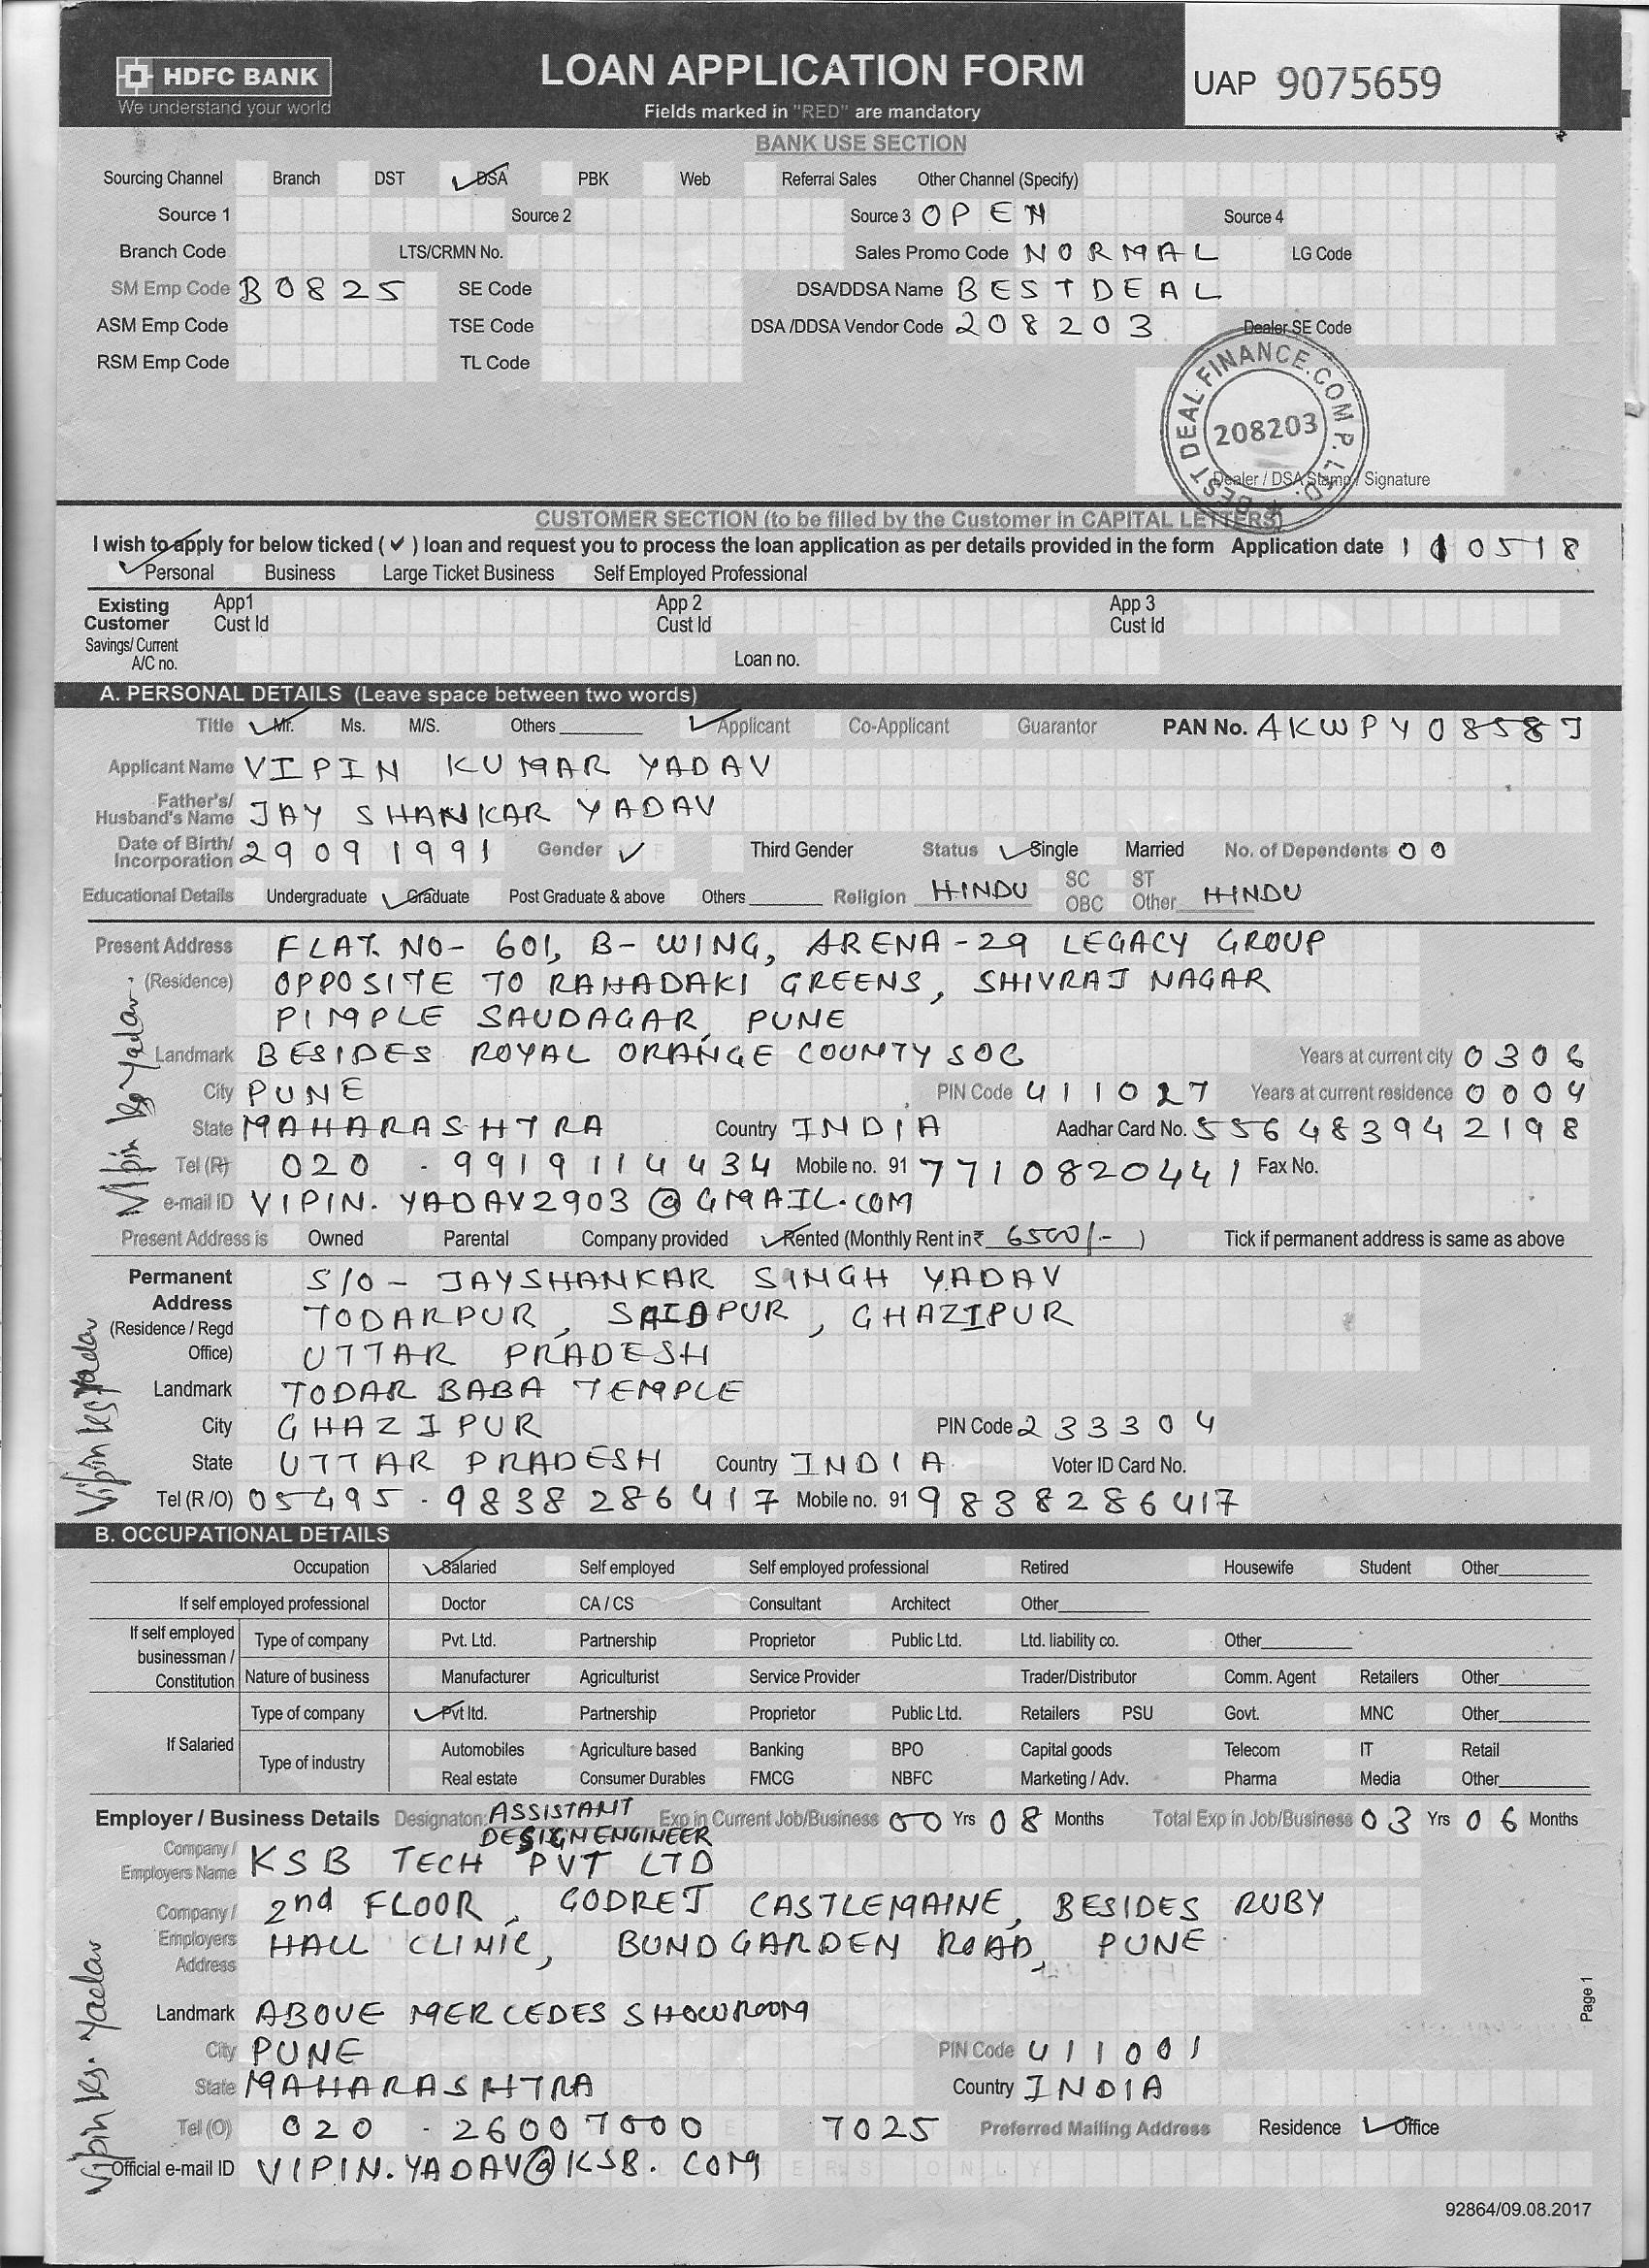 HDFC BANK
We understand your world
LOAN APPLICATION FORM
Fields marked in "RED" are mandatory
UAP 9075659
BANK USE SECTION
Sourcing Channel Branch DST DSA PBK Web Referral Sales Other Channel (Specify)
Source 1 Source 2 Source 3 OPEN Source 4
Branch Code LTS/CRMN No. Sales Promo Code NORMAL LG Code
SM Emp Code B0825 SE Code DSA/DDSA Name BESTDEAL
ASM Emp Code TSE Code DSA /DDSA Vendor Code 208203 Dealer SE Code
RSM Emp Code TL Code
BEST DEAL FINANCE.COM P. LTD.
208203
Dealer / DSA Stamp / Signature
CUSTOMER SECTION (to be filled by the Customer in CAPITAL LETTERS)
I wish to apply for below ticked (✓) loan and request you to process the loan application as per details provided in the form Application date 110518
Personal Business Large Ticket Business Self Employed Professional
Existing Customer App1 Cust Id App 2 Cust Id App 3 Cust Id
Savings/ Current A/C no. Loan no.
A. PERSONAL DETAILS (Leave space between two words)
Title Mr. Ms. M/S. Others Applicant Co-Applicant Guarantor PAN No. AKWPY0858J
Applicant Name VIPIN KUMAR YADAV
Father's/ Husband's Name JAY SHANKAR YADAV
Date of Birth/ Incorporation 29091991 Gender Third Gender Status Single Married No. of Dependents 00
Educational Details Undergraduate Graduate Post Graduate & above Others Religion HINDU SC ST OBC Other HINDU
Present Address FLAT. NO- 601, B- WING, ARENA-29 LEGACY GROUP
(Residence) OPPOSITE TO RAHADAKI GREENS, SHIVRAJ NAGAR
PIMPLE SAUDAGAR, PUNE
Landmark BESIDES ROYAL ORANGE COUNTY SOC Years at current city 0306
City PUNE PIN Code 411027 Years at current residence 0004
State MAHARASHTRA Country INDIA Aadhar Card No. 556483942198
Tel (R) 020 - 9919114434 Mobile no. 91 7710820441 Fax No.
e-mail ID VIPIN.YADAV2903@GMAIL.COM
Present Address is Owned Parental Company provided Rented (Monthly Rent in ₹ 6500/-) Tick if permanent address is same as above
Vipin Kr Yadav
Permanent Address S/O - JAYSHANKAR SINGH YADAV
(Residence / Regd Office) TODARPUR, SAIDPUR, GHAZIPUR
UTTAR PRADESH
Landmark TODAR BABA TEMPLE
City GHAZIPUR PIN Code 233304
State UTTAR PRADESH Country INDIA Voter ID Card No.
Tel (R /O) 05495 - 9838286417 Mobile no. 91 9838286417
Vipin Kr Yadav
B. OCCUPATIONAL DETAILS
Occupation Salaried Self employed Self employed professional Retired Housewife Student Other
If self employed professional Doctor CA / CS Consultant Architect Other
If self employed businessman / Constitution Type of company Pvt. Ltd. Partnership Proprietor Public Ltd. Ltd. liability co. Other
Nature of business Manufacturer Agriculturist Service Provider Trader/Distributor Comm. Agent Retailers Other
If Salaried Type of company Pvt ltd. Partnership Proprietor Public Ltd. Retailers PSU Govt. MNC Other
Type of industry Automobiles Agriculture based Banking BPO Capital goods Telecom IT Retail
Real estate Consumer Durables FMCG NBFC Marketing / Adv. Pharma Media Other
Employer / Business Details Designaton: ASSISTANT DESIGN ENGINEER Exp in Current Job/Business 00 Yrs 08 Months Total Exp in Job/Business 03 Yrs 06 Months
Company / Employers Name KSB TECH PVT LTD
Company / Employers Address 2nd FLOOR, GODREJ CASTLEMAINE, BESIDES RUBY
HALL CLINIC, BUND GARDEN ROAD, PUNE
Landmark ABOVE MERCEDES SHOWROOM
City PUNE PIN Code 411001
State MAHARASHTRA Country INDIA
Tel (O) 020 - 26007000 7025 Preferred Mailing Address Residence Office
Official e-mail ID VIPIN.YADAV@KSB.COM
Vipin Kr. Yadav
Page 1
92864/09.08.2017